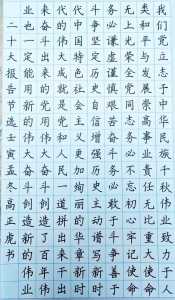 我们党立志于中华民族千秋伟业致力于人
类和平与发展崇高事业责任无比重大使命
无上光荣全党同志务必不忘初心牢记使命
务必谦虚谨慎艰苦奋斗务必敢于斗争善于
斗争坚定历史自信增强历史主动谱写新时
代中国特色社会主义更加绚丽的华章新时
代的伟大成就是党和人民一道拼出来干出
来奋斗出来的党用伟大奋斗创造了百年伟
业也一定能用新的伟大奋斗创造新的伟业
二十大报告节选壬寅孟冬高正虎书